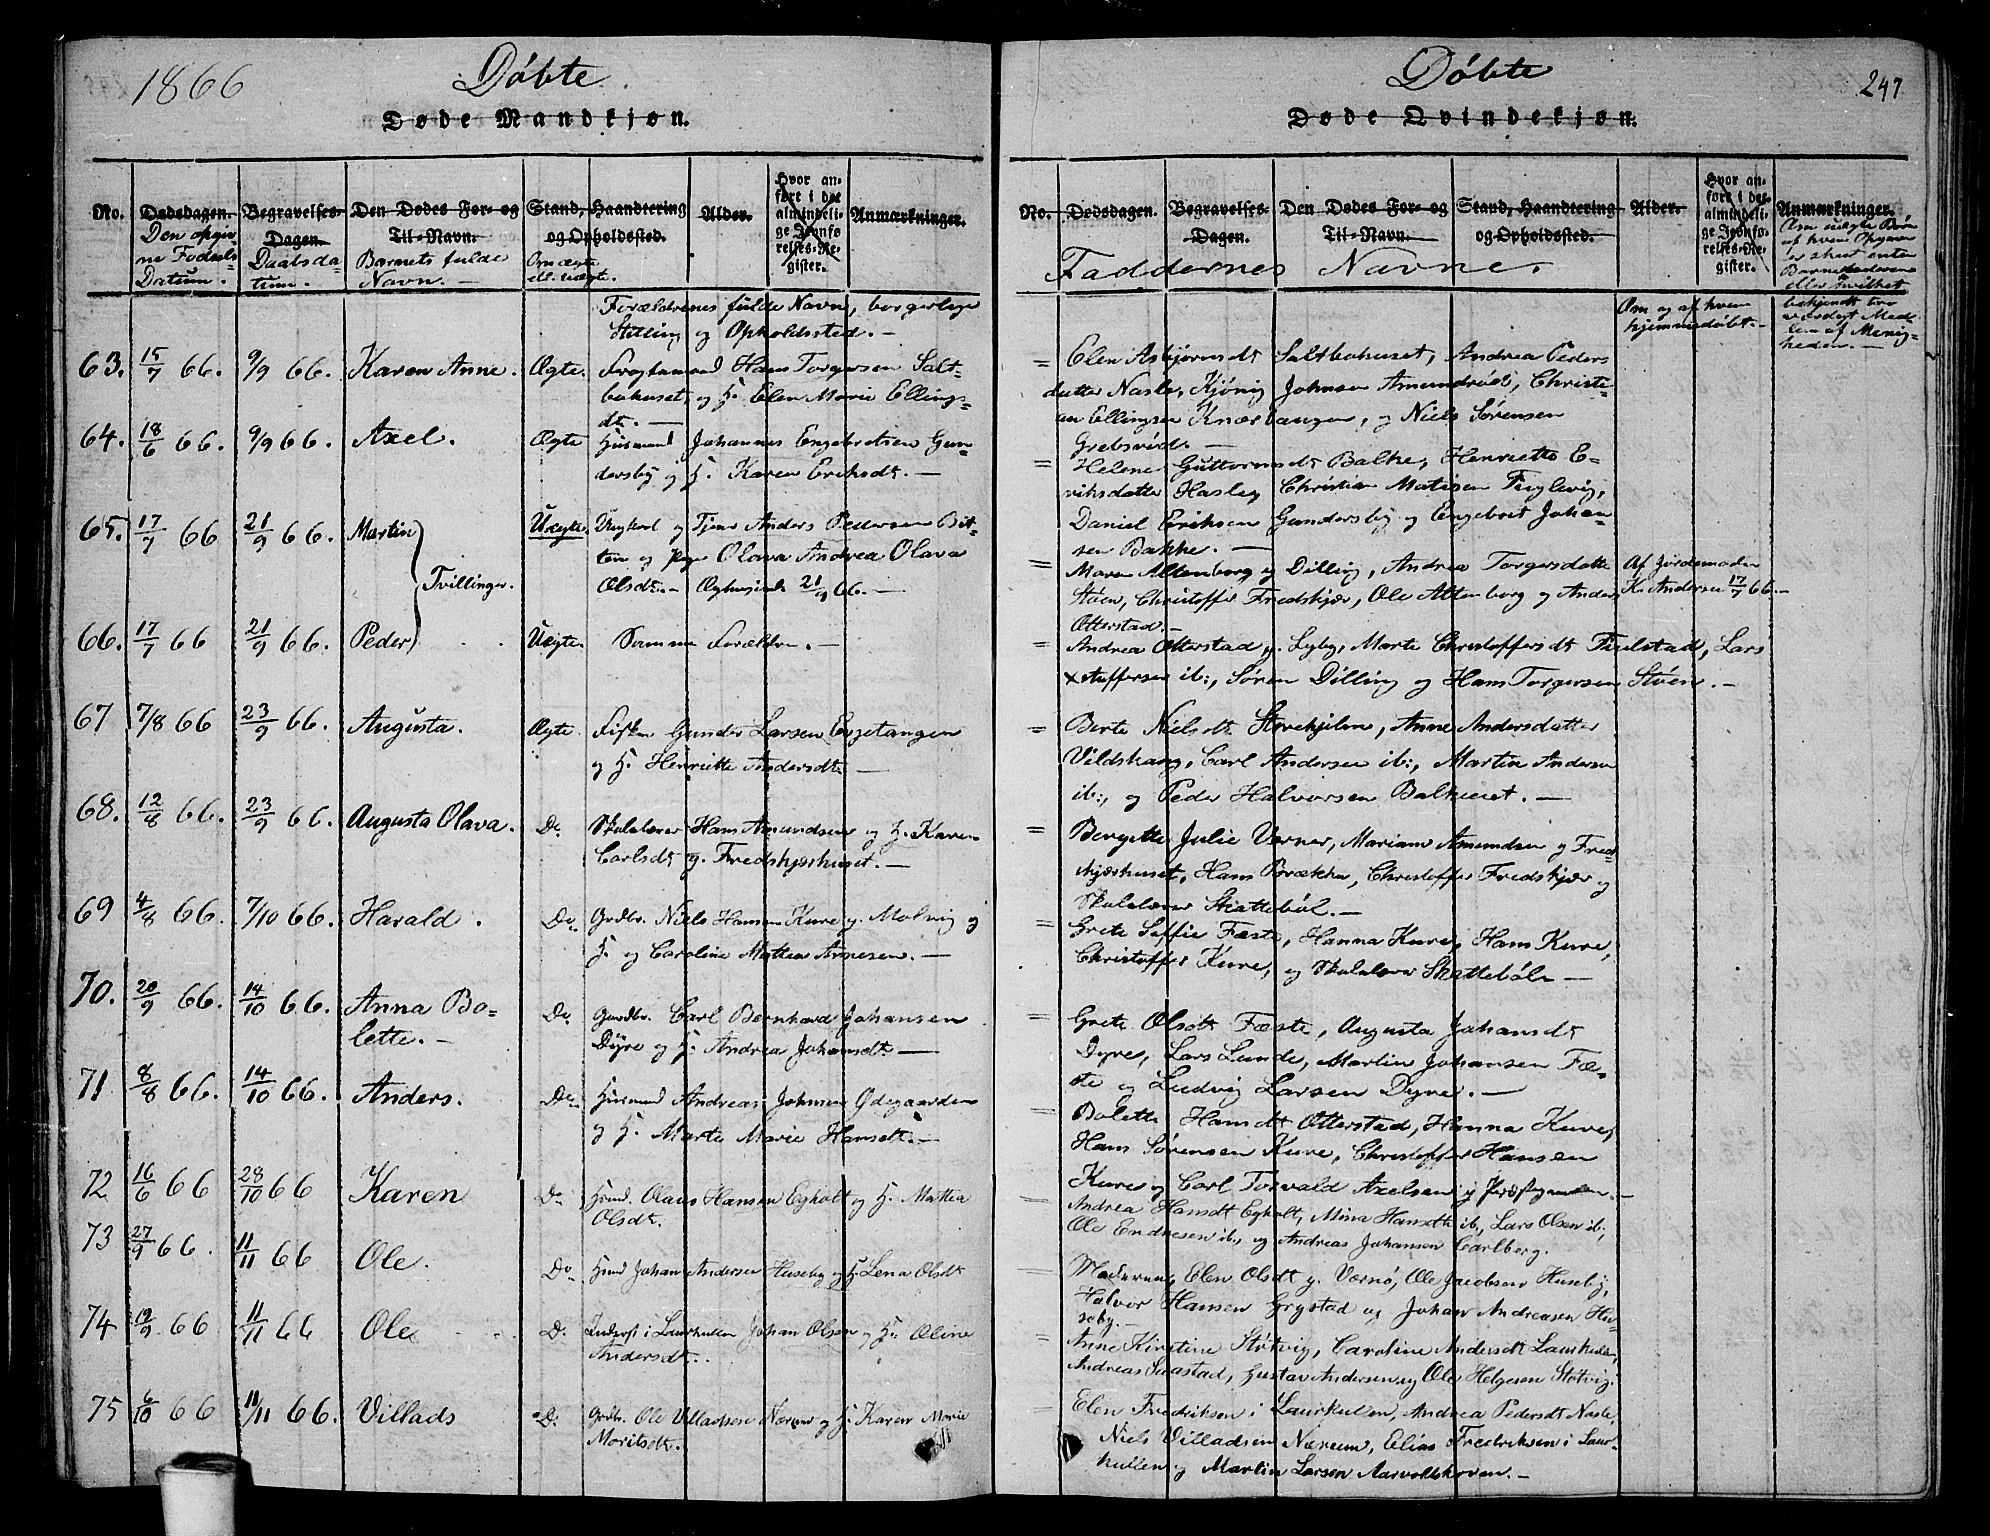 1866
Døbte
Døde Mandkjøn.
No.
Dødsdagen.
Begravelses-Dagen.
Den Dødes For- og Til-Navn.
Stand, Haandtering og Opholdssted.
Alder.
Hvor anført i det almindelige Jevnførelses-Register.
Anmærkninger.
Den opgivne Fødsels Datum.
Daabsdatum.
Barnets fulde Navn.
Om ægte ell. uægte.
Forældrenes fulde Navn, borgerlige
Stilling og Opholdssted.
63. 15/7 66. 9/9 66. Karen Anne. Ægte. Hans Torgersen Salt-
bohuset, og H. Elen Marie Ellings-
dt.
64. 18/6 66. 9/9 66. Axel. Ægte Husmand Johannes Engebretsen Gun-
dersby og H. Karen Eriksdt.
65. 17/7 66 21/9 66. Martin Uægte. Ungkarl og Tjener Anders Pedersen Bit-
ten og Pige Olava Andrea Olava
Olsdt. 21/9 66.
Tvillinger.
66. 17/7 66 21/9 66. Peder Uægte. Samme Forældre.
67 7/8 66 23/9 66. Augusta. Ægte. Gunder Larsen Ergetangen
og H. Henriette Andersdt
68. 12/8 66. 23/9 66. Augusta Olava. Do Skolelærer Hans Amundsen og H. Karen
Carlsdt g. Fredskjærhuset.
69 4/8 66. 7/10 66. Harald. Do Grdbr. Niels Hansen Kure g. Molvig og
H. og Caroline Mathea Arnesen.
70. 20/9 66. 14/10 66. Anna Bo-
lette. Do Gaardbr. Carl Bernhard Johansen
Dyre og H. Andrea Johansdt
71 8/8 66. 14/10 66. Anders. Do Husmand Andreas Johnsen Ødegaarden
og H. Marte Marie Hansdt.
72 16/6 66 28/10 66 Karen Do Hsmd. Olaus Hansen Egholt og H. Mathea
Olsdt.
73 27/9 66. 11/11 66 Ole. Do Hsmd Johan Andersen Huseby og H. Lena Olsdt
74 19/9 66 11/11 66 Ole Do Inderst i Laurkullen Johan Olsen og H. Oline
Andersdt.
75 6/10 66 11/11 66. Villads Do Grdbr. Ole Villadsen Nærum og H. Karen Marie
Moritsdt.
Døbte
247
Døde Qvindekjøn.
No.
Dødsdagen.
Begravelses-Dagen.
Den Dødes For- og Til-Navn.
Stand, Haandtering og Opholdssted.
Alder.
Hvor anført i det almindelige Jevnførelses-Register.
Anmærkninger.
Faddernes Navne.
Om og af hvem
hjemmedøbt.
Om uægte Børn
af hvem Opgaven
er skeet enten
Barnefaderen
eller hvilket
bekjendt tro-
værdigt Med-
lem af Menig-
heden.
= Elen Asbjørnsdt Saltbohuset, Andrea Peders
datter Nasle, Kjønig Johnsen Amundrød, Christi-
an Ellingsen Knærbangen, og Niels Sørensen
Grebsvird.
= Helene Guttormsdt Balke, Henriette E-
riksdatter Hasle, Christian Matisen Fuglevig,
Daniel Eriksen Gundersby og Engebret Johan-
sen Bakke.
= Maren Altenborg g Dilling, Andrea Torgersdatte Af Jordemoder
Støen, Christoffer Fredskjær, Ole Altenborg og Anders K. Andersen 17/7 66.
Otterstad.
= Andrea Otterstad g. Lyby, Marte Christoffersdt Fuelstad, Lars
Xstoffersen ib:, Søren Dilling og Hans Torgersen Støen.
= Berte Nielsdt Storekjilen, Anne Andersdatter
Vildshaug, Carl Andersen ib:, Martin Andersen
ib:, og Peder Halvorsen Balkeeiet.
= Bergitte Julie Verner, Mariane Amundsen og Freds-
kjærhuset, Hans Brække, Christoffer Fredskjær og
Skolelærer Skattebøl.
= Grete Soffie Fæste, Hanna Kure, Hans Kure,
Christoffer Kure, og Skolelærer Skattebøl.
= Grete Olsdt Fæste, Augusta Johansdt
Dyre, Lars Lunde, Martin Johansen Fæ-
ste og Ludvig Larsen Dyre.
= Bolette Hansdt Otterstad, Hanna Kure,
Hans Sørensen Kure, Christoffer Hansen
Kure og Carl Torvald Axelsen g
= Andrea Hansdt Egholt, Mina Hansdt ib., Lars Olsen ib.,
Ole Endresen ib., og Andreas Johansen Carlberg.
= Moderen, Elen Olsdt g. Værnø, Ole Jacobsen Huseby,
Halvor Hansen Grystad og Johan Andreasen Hu-
seby.
= Anne Kirstine Støtvig, Caroline Andersdt Laurkulen,
Andreas Saastad, Gustav Andersen og Ole Helgesen Støtvig.
= Elen Fredriksen i Laurkullen, Andrea Pedersdt Nasle,
Niels Villadsen Nærum, Elias Fredriksen i Laur-
kullen og Martin Larsen Aarvoldskoven.